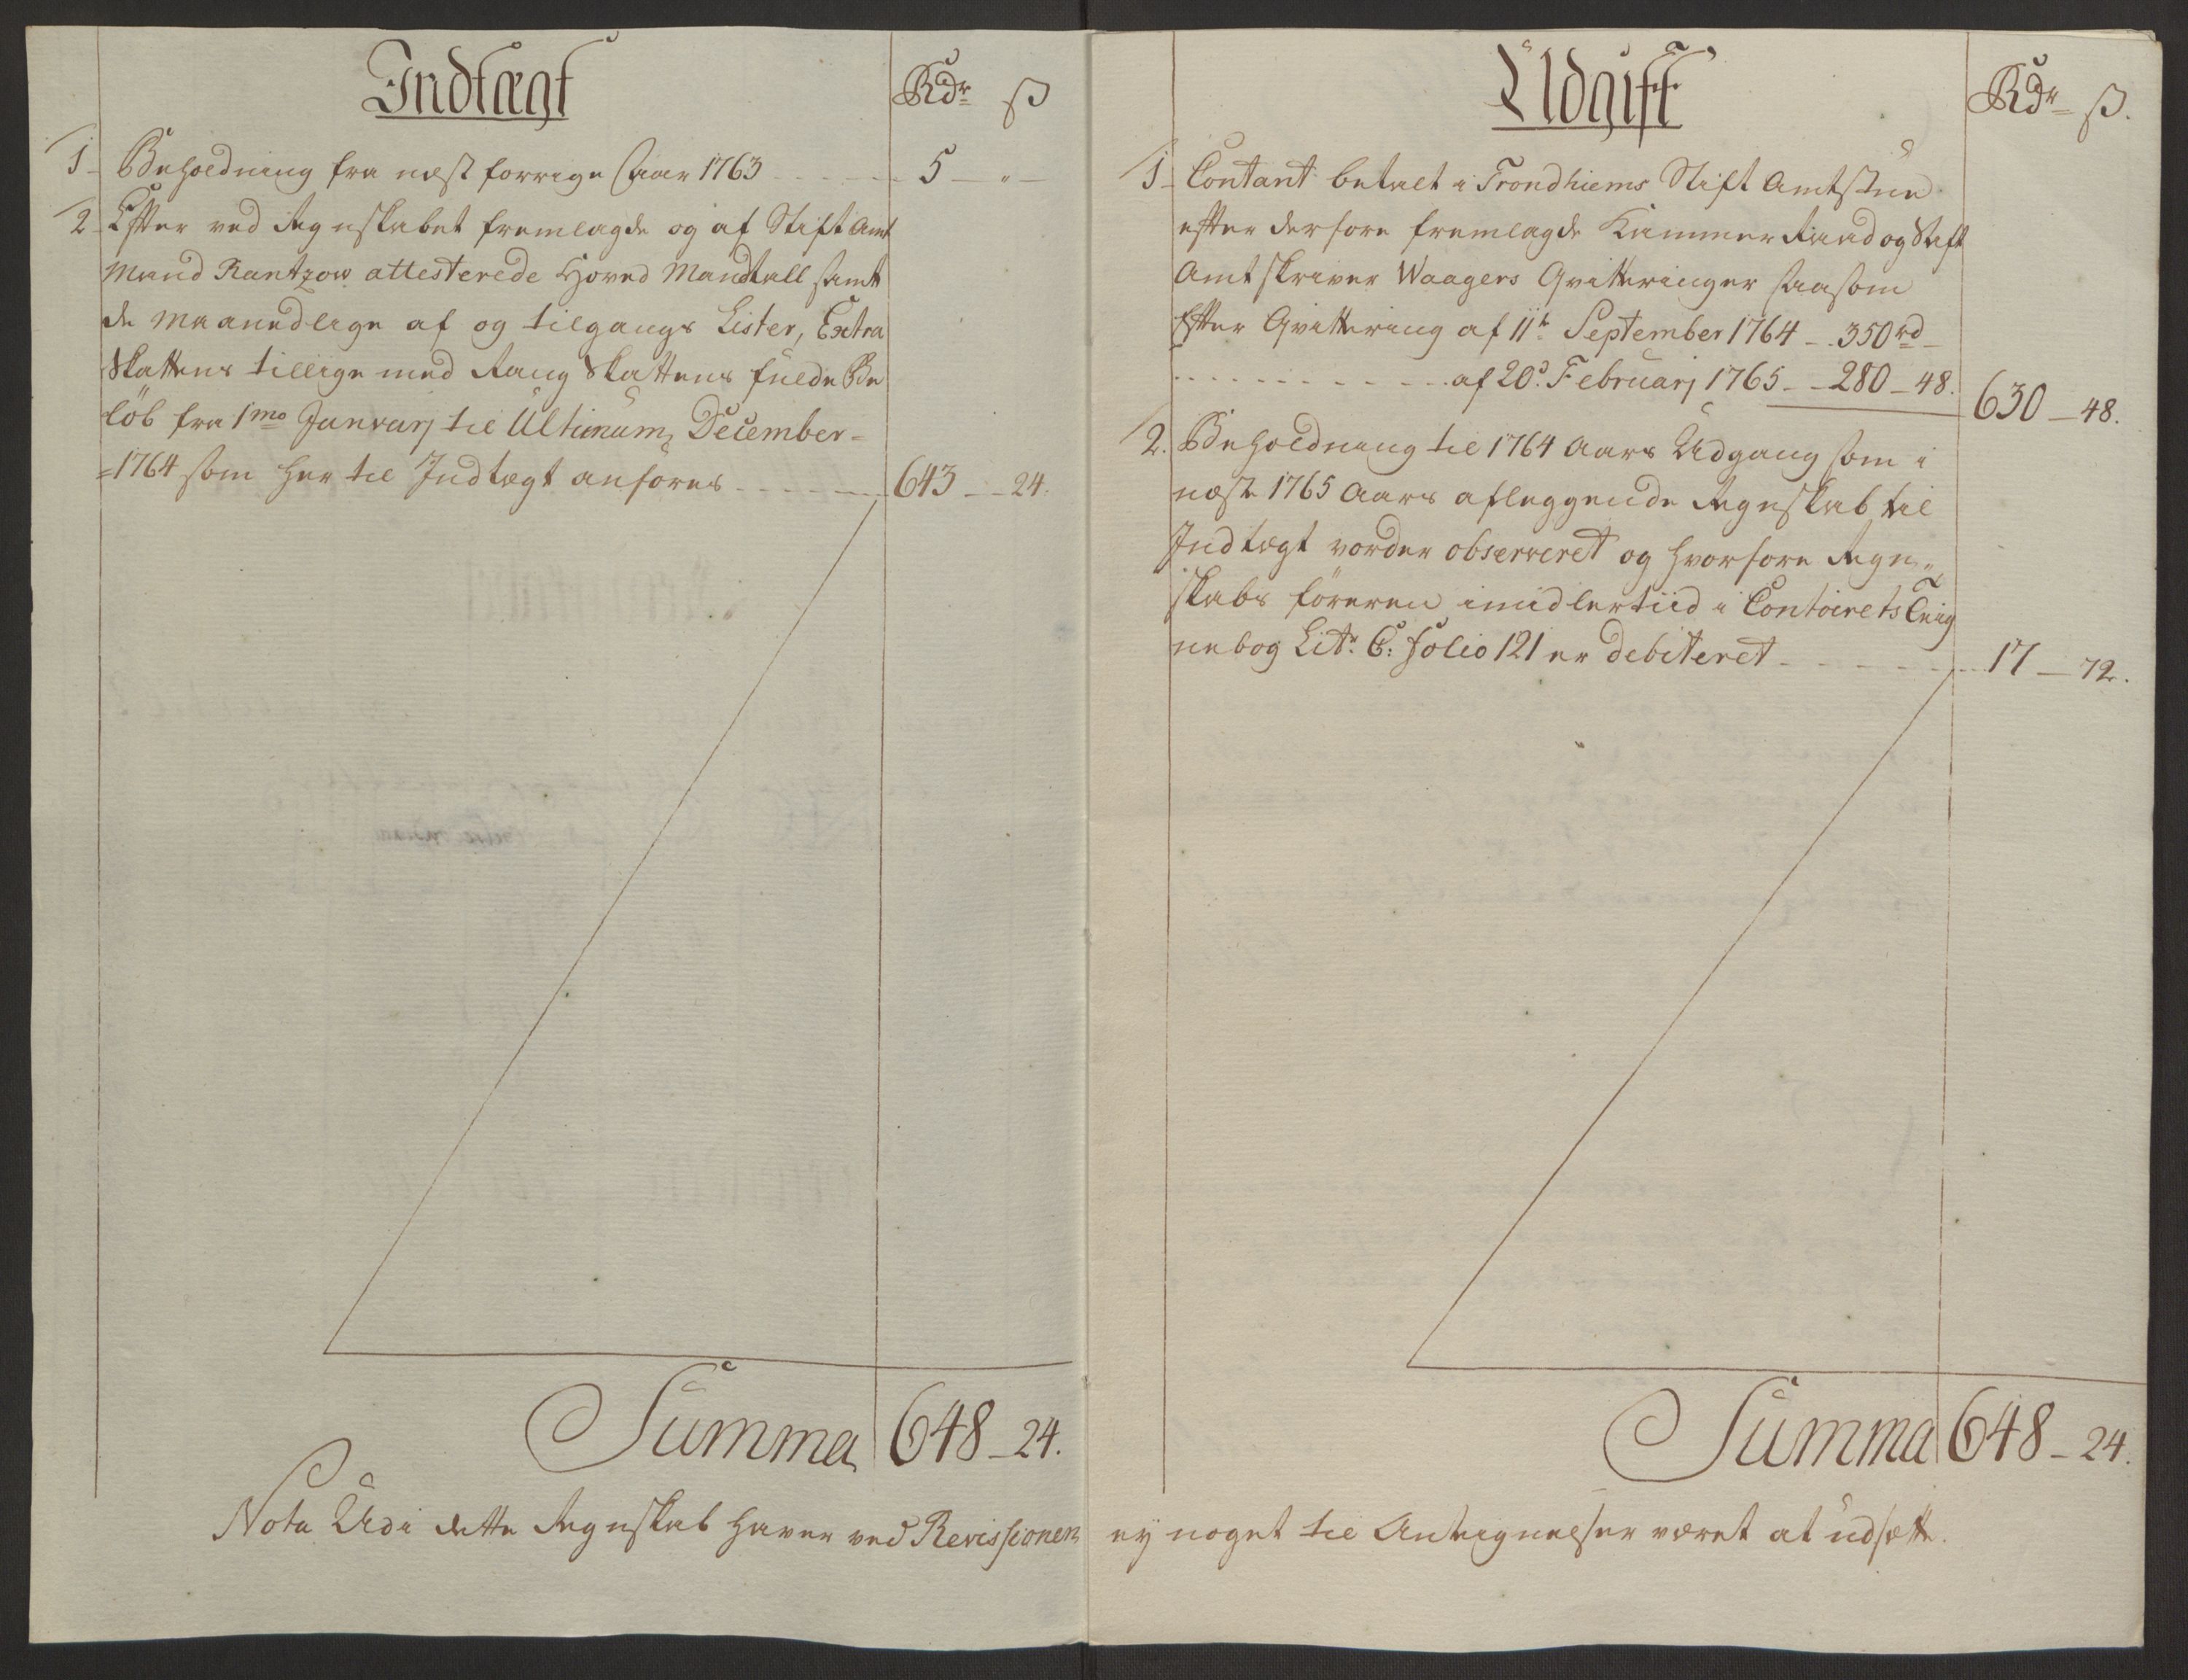 Indtægt
Rdr ß
1 Beholdning fra næst forrige Aar 1763 5 - " -
2 Efter ved Regnskabet fremlagde og af Stift Amt
Mand Rantzow attesterede Hoved Mandtall samt
de Maanedlige af og tilgangs Lister, Extra
Skattens tillige med Rang Skattens fulde Be
löb fra 1mo Januarj til Ultimum December =
= 1764 som her til Indtægt anföres 643 - 24.
Summa 648 - 24.
Nota Udi dette Regnskab haver ved Revissionen
Udgift
Rdr ß.
1 Contant betalt i Trondhiems Stift Amtstue
efter derfore fremlagde Kammer Raad og Stift
Amtskriver Waagers Qvitteringer saasom
Efter Qvittering af 11te September 1764 - 350rd -
- - - af 20d Februarj 1765 - 280 - 48.
630 - 48.
2. Beholdning til 1764 Aars Udgang som i
næste 1765 Aars aflæggende Regnskab til
Indtægt vorder observeret og hvorfore Regn„
skabs föreren imidlertiid i Contoirets Teig
nebog Litr: C: folio 121 er debiteret 17 - 72.
Summa 648 - 24.
ej noget til Antegnelser været at udsætte.